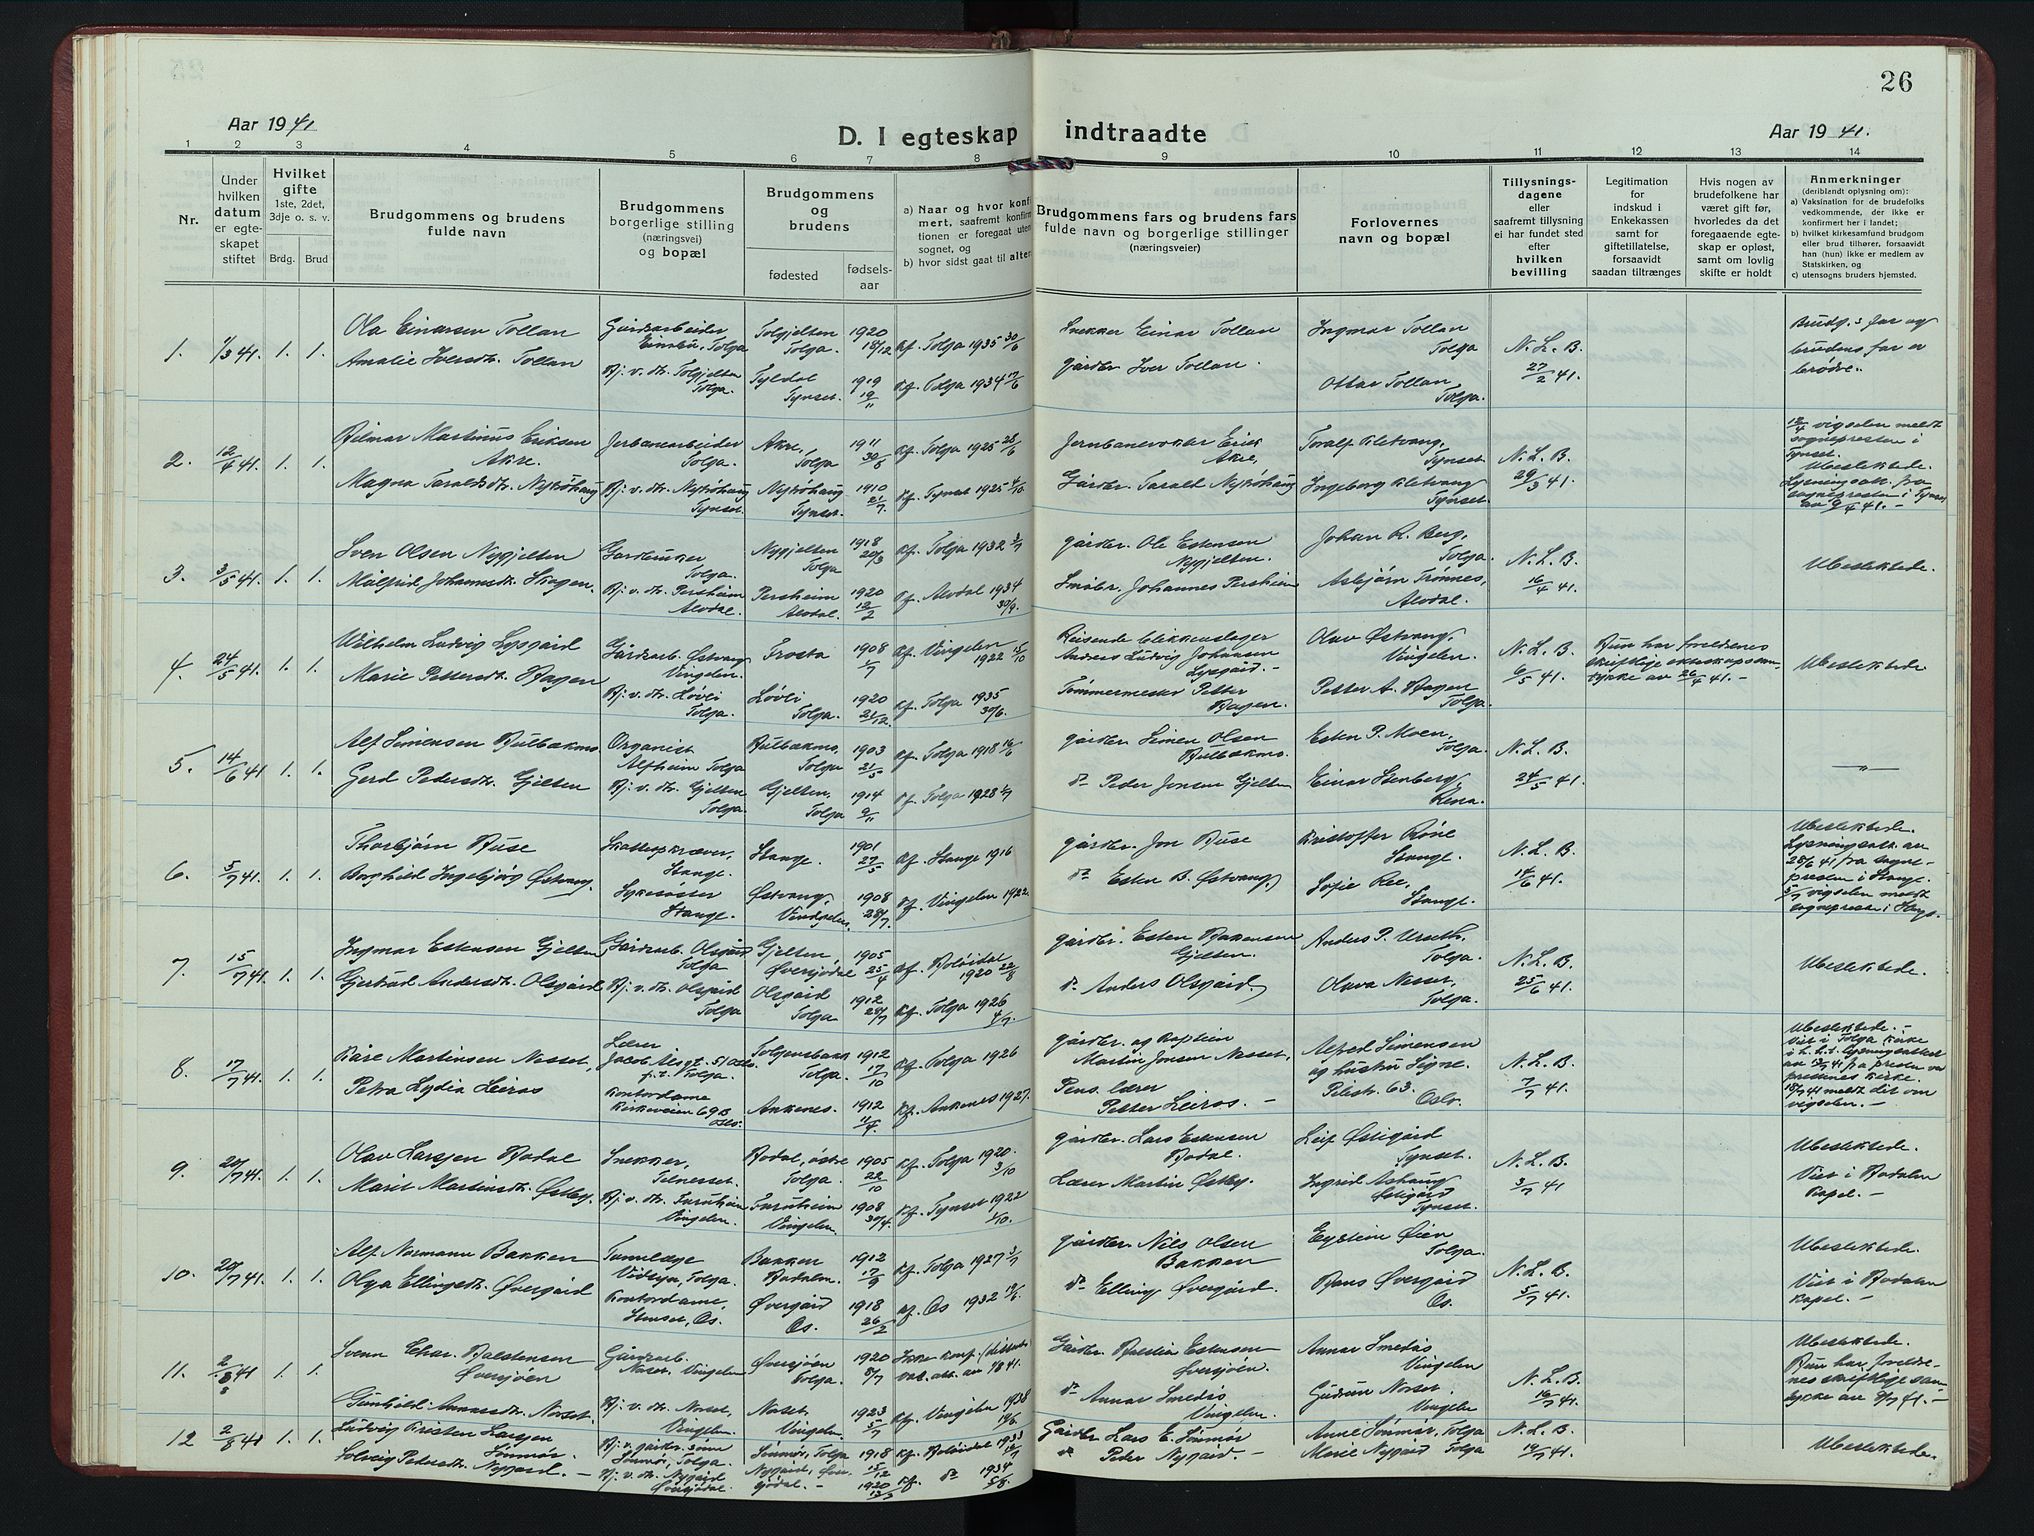 26
Aar 1941
D. I egteskap indtraadte
Aar 1941.
1 2 3 4 5 6 7 8 9 10 11 12 13 14
Nr.
Under hvilken datum er egte-skapet stiftet
Hvilket gifte 1ste, 2det, 3dje o. s. v.
Brdg. Brud
Brudgommens og brudens fulde navn
Brudgommens borgerlige stilling (næringsvei) og bopæl
Brudgommens og brudens
fødested
fødsels-aar
a) Naar og hvor konfirmert, saafremt konfirmationen er foregaat uten sognet, og
b) hvor sidst gaat til alter
Brudgommens fars og brudens fars fulde navn og borgerlige stillinger (næringsveier)
Forlovernes navn og bopæl
Tillysnings-dagene eller saafremt tillysning ei har fundet sted efter hvilken bevilling
Legitimation for indskud i Enkekassen samt for giftetillatelse, forsaavidt saadan tiltrænges
Hvis nogen av brudefolkene har været gift før, hvorledes da det foregaaende egte-skap er opløst, samt om lovlig skifte er holdt
Anmerkninger (deriblandt oplysning om):
a) Vaksination for de brudefolks vedkommende, der ikke er konfirmert her i landet;
b) hvilket kirkesamfund brudgom eller brud tilhører, forsaavidt han (hun) ikke er medlem av Statskirken, og
c) utensogns bruders hjemsted.
1. 1/3 41. 1. 1.
Ola Einarsen Tollan
Amalie Iversdtr. Tollan
Gårdsarbeider
Tolga
Hj. v. dtr. Tolgjelten Tolga.
Tolgjelten Tolga. 1920 18/12
Tyldal Tynset. 1919 19/11
Kf. Tolga 1935 30/6
Kf. Tolga 1934 17/6
Snekker Einar Tollan
Gårdbr. Iver Tollan.
Ingmar Tollan Tolga
Ottar Tollan, Tolga.
N. L. B. 27/2 41.
Brudg.s far og brudens far er brødre.
2. 12/4 41. 1. 1.
Hilmar Martinus Eriksen Åkre.
Magna Taraldsdtr. Nyrøhaug
Jerbanearbeider Tolga.
Hj. v. dtr. Nyrøhaug Tynset.
Åkre, Tolga 1911 30/5
Nyrøhaug Tynset. 1910 21/7
Kf. Tolga 1925 28/6
Kf. Tynset 1925 4/10
Jernbanevokter Erik Åkre,
Gårdbr. Tarald Nyrøhaug
Toralf Kletvang, Tynset
Ingeborg Kletvang Tynset.
N. L. B. 29/3 41.
12/4 vigselen meldt sognepresten i Tynset.
Ubeslektede.
Lysningsatt. fra sognepresten i Tynset av 9/4 41. -
3. 3/5 41. 1. 1.
Sven Olsen Nygjelten
Målfrid Johannesdtr. Skogen.
Gardbruker Tolga.
Hj. v. dtr. Persheim Alvdal.
Nygjelten Tolga 1918 20/3
Persheim Alvdal. 1920 12/2
Kf. Tolga 1932 3/7
Kf. Alvdal 1934 30/9.
Gårdbr. Ole Estensen Nygjelten.
Småbr. Johannes Persheim
Johan R. Berg, Tolga.
Asbjørn Trønnes, Alvdal.
N. L. B. 16/4 41.
Ubeslektede.
4. 24/5 41. 1. 1.
Wilhelm Ludvig Lysgård
Marie Pettersdtr. Hagen
Gårdsarb. Østvang Vingelen.
Hj. v. dtr. Løvli Tolga.
Frosta 1908 1/7
Løvli Tolga. 1920 21/12
Kf. Vingelen 1922 15/10
Kf. Tolga 1935 30/6.
Reisende blikkenslager Anders Ludvig Johansen Lysgård. -
Tømmermester Petter Hagen.
Olav Østvang, Vingelen.
Petter A. Hagen Tolga.
N. L. B. 6/5 41.
Hun har foreldrenes skriftlige ekteskapssamtykke av 26/4 41. -
Ubeslektede
5. 14/6 41 1. 1.
Alf Simensen Hulbakmo.
Gerd Pedersdtr. Gjelten
Organist Alfheim Tolga
Hj. v. dtr. Gjelten Tolga.
Hulbakmo, Tolga 1903 21/5
Gjelten, Tolga 1914 9/11
Kf. Tolga 1918 16/6
Kf. Tolga 1928 1/7
Gårdbr. Simen Olsen Hulbakmo.
do Peder Jonsen Gjelten
Esten P. Moen, Tolga.
Einar Stenberg, Rena.
N. L. B. 24/5 41.
— " —
6. 5/7 41. 1. 1.
Thorbjørn Huse
Borghild Ingebjørg Østvang.
Skatteopkræver, Stange.
Sykesøster Stange.
Stange. 1901 27/5
Østvang, Vingelen. 1908 28/7
Kf. Stange 1916
Kf. Vingelen 1922.
Gårdbr. Jon Huse
do Esten B. Østvang.
Kristoffer Røne Stange.
Sofie Ree, Stange.
N. L. B. 14/6 41.
Ubeslektede.
Lysningsatt. av 28/6 41 fra sognepresten i Stange.
5/7 vigselen meldt sogneprest i Stange.
7. 15/7 41. 1. 1.
Ingmar Estensen Gjelten
Gjertrud Andersdtr. Olsgård
Gårdsarb. Olsgård Tolga
Hj. v. dtr. Olsgård Tolga
Gjelten, Øversjødal 1905 25/4
Olsgård Tolga 1912 28/7
Kf. Holøidal 1920 22/8
Kf. Tolga 1926 4/7.
Gårdbr. Esten Gjelten.
do Anders Olsgård.
Anders P. Urseth, Tolga.
Olava Nesset, Tolga.
N. L. B. 25/6 41.
Ubeslektede.
8. 17/7 41. 1. 1.
Kåre Martinsen Nesset,
Petra Lydia Leiros
Lærer
p.t. Tolga.
Kontordame Kirkeveien 69B Oslo.
Tolgensbakk Tolga. 1912 17/10
Ankenes. 1912 1/4
Kf. Tolga 1926
Kf. Ankenes 1927.
Gårdbr. og kaptein Martin Jonsen Nesset,
Pens. lærer Petter Leiros. -
Alfred Simensen og hustru Signe.
Pilestr. 63. Oslo.
N. L. B. 7/7 41.
Ubeslektede. -
Viet i Tolga kirke
vigselen. -
9. 20/7 41. 1. 1.
Olav Larsen Hodal
Marit Martinsdtr. Østby.
Snekker, Telnesset.
Hj. v. dtr. Furuheim Vingelen.
Hodal, østre Tolga. 1905 22/10
Furuheim Vingelen 1908 30/4.
Kf. Tolga 1920. 3/10
Kf. Tynset 1922 1/10.
Gårdbr. Lars Estensen Hodal.
Lærer Martin Østby.
Leif Østigård Tynset.
Ingrid Østigård Tynset.
N. L. B. 3/7 41
Ubeslektede.
Viet i Hodalen kapel. -
10. 20/7 41. 1. 1.
Alf Normann Bakken
Olga Ellingsdtr. Øvergård
Tannlæge Vidsyn, Tolga.
Kontordame, Os.
Bakken Hodalen. 1912 17/9
Øvergård Os. 1918 26/2
Kf. Tolga 1927 3/7
Kf. Os 1932 19/6.
Gårdbr. Nils Olsen Bakken
do Elling Øvergård.
Eystein Øien Tolga.
Hans Øvergård Os.
N. L. B. 5/7 41.
Ubeslektede.
Viet i Hodalen kapel. -
11. 2/8 41 1. 1.
Svenn Char. Halstensen Øversjøen
Gunhild Annarsdtr. Norset.
Gårdsarb. Noset. Vingelen
Hj. v. dtr. Noset, Vingelen.
Øversjøen Tolga. 1920 8/7
Noset Vingelen. 1923 5/7
Ikke konf. (dissenter) vac. att. av 1/8 41.
Kf. Vingelen 1938 19/6.
Gårdbr. Halstein Estensen Øversjøen.
do Annar Smedås Vingelen.
Annar Smedås Vingelen
Gudrun Norset. Vingelen
N. L. B. 16/7 41.
Ubeslektede.
Hun har foreldrenes skriftlige samtykke av 9/7 41. -
12 2/8 41 1. 1.
Ludvig Kristen Larsen Sønmør.
Solveig Pedersdtr. Nygård. -
Hj. v. gårdbr. sønn Sønmør, Tolga.
Hj. v. dtr. Nygård Øversjødal.
Sønmør, Tolga 1918 15/12
Nygård, Øversjødal. - 1920 13/7
Kf. Holøidal 1933
Kf. do 1934 5/8.
Gårdbr Lars E. Sønmør
do Peder Nygård. -
Anne Sønmør, Tolga
Marie Nygård Tolga
N. L. B. 19/7 41.
Ubeslektede.